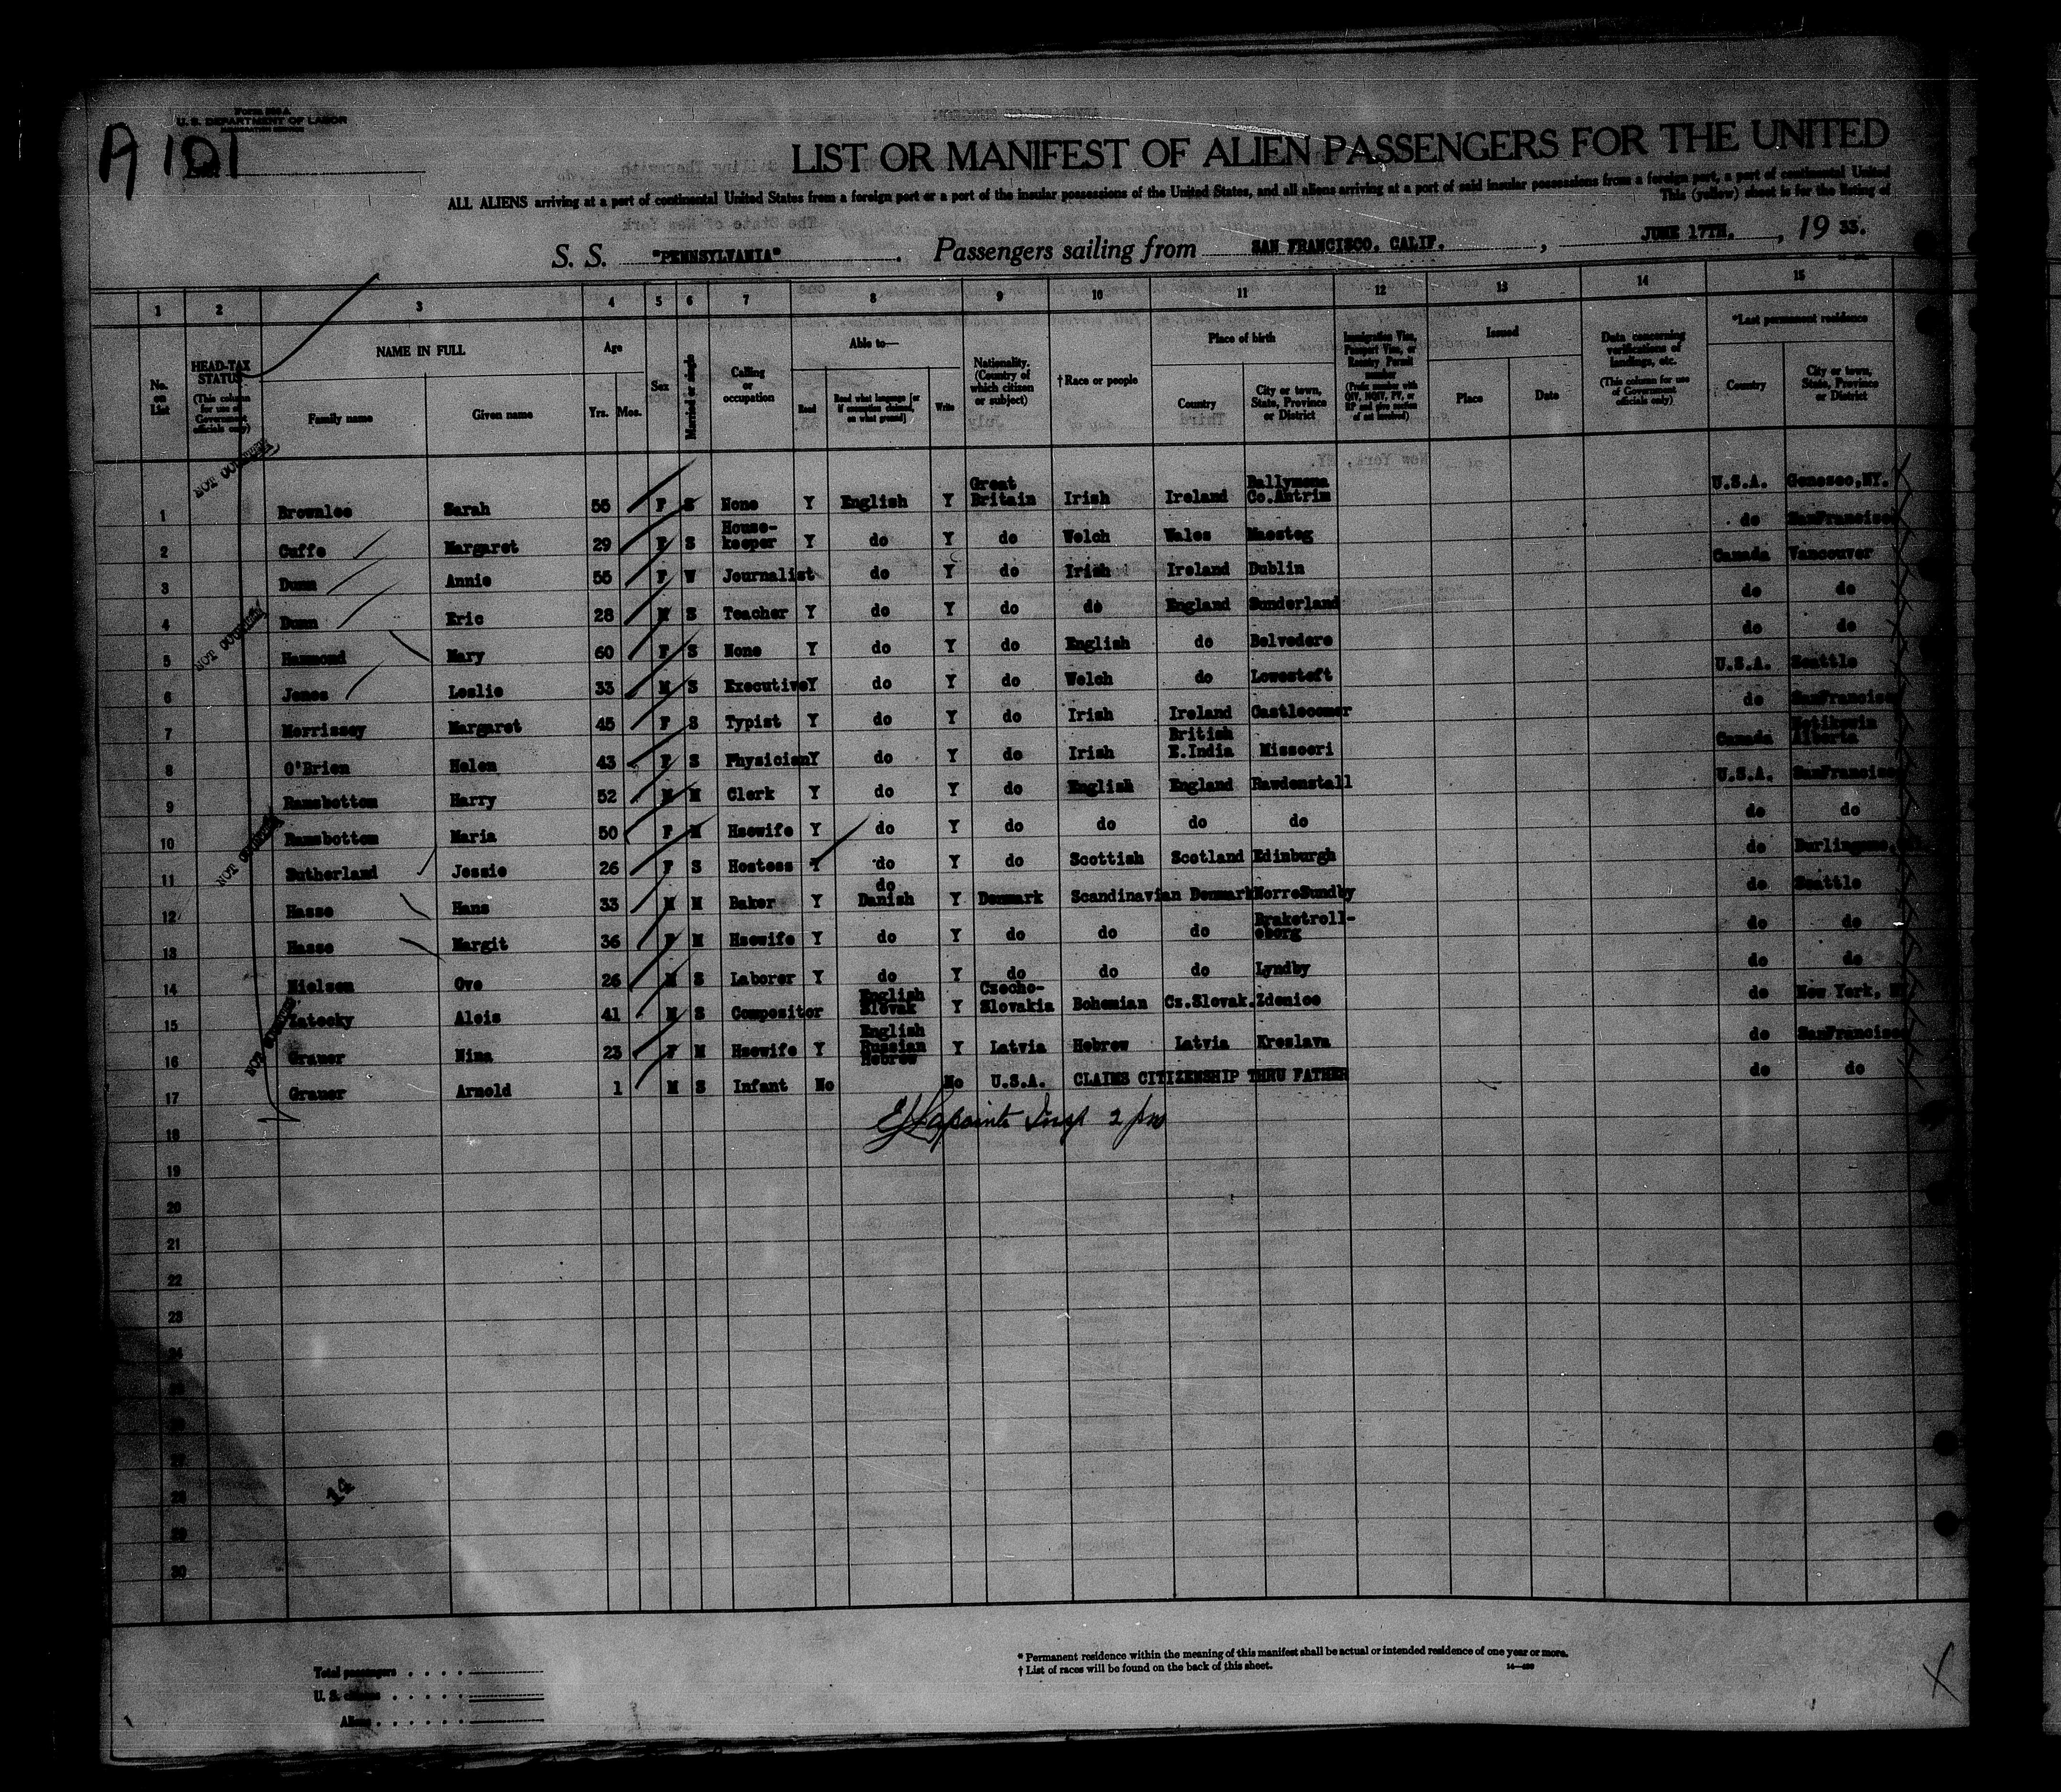 Form 500 A
U. S. DEPARTMENT OF LABOR
IMMIGRATION SERVICE
A 101
LIST OR MANIFEST OF ALIEN PASSENGERS FOR THE UNITED
ALL ALIENS arriving at a port of continental United States from a foreign port or a port of the insular possessions of the United States, and all aliens arriving at a port of said insular possessions from a foreign port, a port of continental United
This (yellow) sheet is for the listing of
S. S. "PENNSYLVANIA" . Passengers sailing from SAN FRANCISCO. CALIF. , JUNE 17TH. , 19 33.
1 2 3 4 5 6 7 8 9 10 11 12 13 14 15
No. on List
HEAD-TAX STATUS (This column for use of Government officials only)
NAME IN FULL
Family name Given name
Age
Yrs. Mos.
Sex
Married or single
Calling or occupation
Able to—
Read Read what language [or if exemption claimed, on what ground] Write
Nationality, (Country of which citizen or subject)
† Race or people
Place of birth
Country City or town, State, Province or District
Immigration Visa, Passport Visa, or Reentry Permit number (Prefix number with QIV, NQIV, PV, or RP and give section of act involved)
Issued
Place Date
Data concerning verifications of landings, etc. (This column for use of Government officials only)
*Last permanent residence
Country City or town, State, Province or District
1 Brownlee Sarah 55 F S None Y English Y Great Britain Irish Ireland Ballymena Co.Antrim U.S.A. Geneseo,NY.
2 Cuffe Margaret 29 F S House-keeper Y do Y do Welch Wales Maesteg do SanFrancisco
3 Dunn Annie 55 F W Journalist do Y do Irish Ireland Dublin Canada Vancouver
4 Dunn Eric 28 M S Teacher Y do Y do do England Sunderland do do
5 Hammond Mary 60 F S None Y do Y do English do Belvedere do do
6 Jones Leslie 33 M S Executive Y do Y do Welch do Lowestoft U.S.A. Seattle
7 Morrissey Margaret 45 F S Typist Y do Y do Irish Ireland Castlecomer do SanFrancisco
8 O'Brien Helen 43 F S Physician Y do Y do Irish British E.India Missoori Canada Alberta
9 Ramsbottom Harry 52 M M Clerk Y do Y do English England Rawdenstall U.S.A. SanFrancisco
10 Ramsbottom Maria 50 F M Hsewife Y do Y do do do do do do
11 Sutherland Jessie 26 F S Hostess Y do Y do Scottish Scotland Edinburgh do Burlingame,
12 Hasse Hans 33 M M Baker Y do Danish Y Denmark Scandinavian Denmark NorreSundby do Seattle
13 Hasse Margit 36 F M Hsewife Y do Y do do do Braketroll-eborg do do
14 Nielsen Ove 26 M S Laborer Y do Y do do do Lyndby do do
15 Zatecky Alois 41 M S Compositor English Slovak Y Czecho-Slovakia Bohemian Cz.Slovak. Zdenice do New York,
16 Graner Nina 23 F M Hsewife Y English Russian Hebrew Y Latvia Hebrew Latvia Kreslava do SanFrancisco
17 Graner Arnold 1 M S Infant No No U.S.A. CLAIMS CITIZENSHIP THRU FATHER do do
18 EJ Lapointe Insp 2 pm
19
20
21
22
23
24
25
26
27
28
29
30
14
Total passengers
U. S. citizens
Aliens
* Permanent residence within the meaning of this manifest shall be actual or intended residence of one year or more.
† List of races will be found on the back of this sheet.